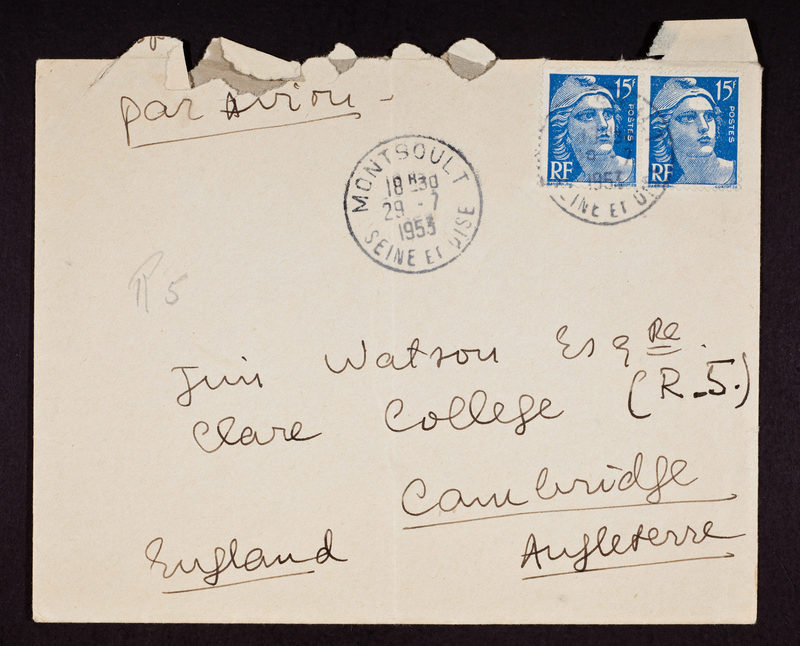 par Avion -
15F
POSTES
RF
15F
POSTES
RF
MONTSOULT
18 H 30
29 - 7
1953
SEINE ET OISE
1953
SEINE ET OISE
R 5
Jim Watson Esqre.
Clare College (R.5.)
Cambridge
England Angleterre